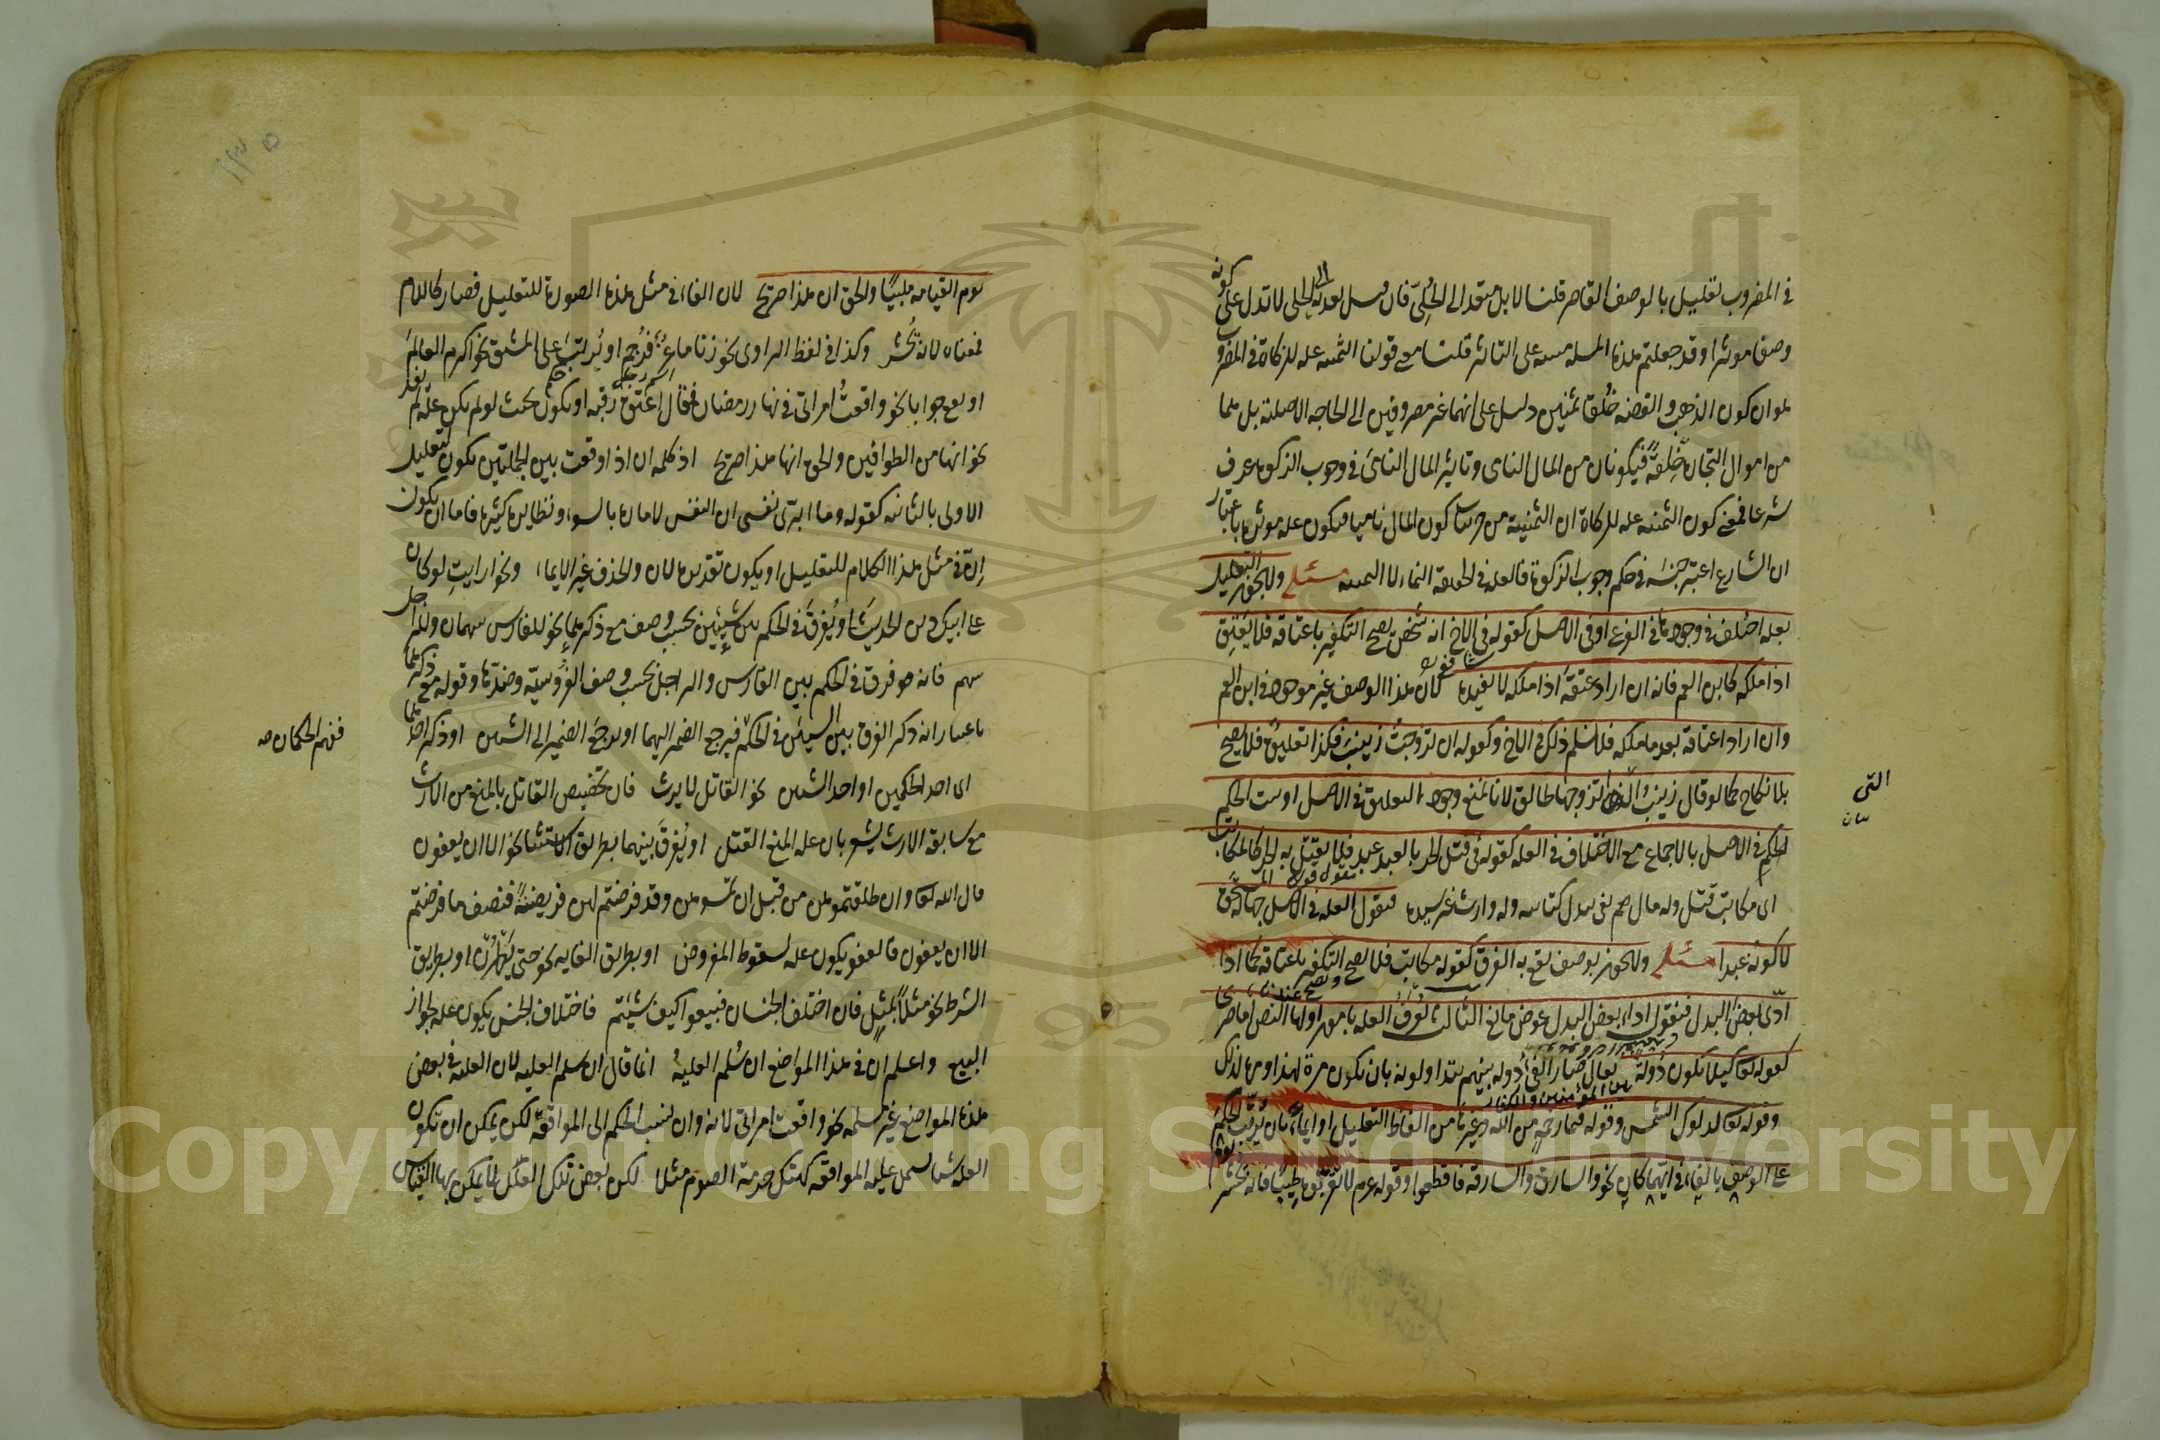 في المضروب تعليل بالوصف القاصر قلنا لا بل متعد الى الحُلِيّ فان قيل تعديته الى الحلى لا تدل على كونه
وصفا موثرا وقد جعلتم هذه المسله مبنيه على التاثير قلنا معنى قولنا الثمنيه عله للزكاة في المضروب
هو ان كون الذهب والفضه خُلقا ثمنين دليل على انهما غير مصروفين الى الحاجه الاصلية بل هما
من اموال التجارة خِلقةً فيكونان من المال النامى وتاثير المال النامي في وجوب الزكوة عرف
شرعا فمعنى كون الثمنيه عله للزكاة ان الثمنية من جزئيات كون المال ناميا فتكون عله موثرة باعتبار
ان الشارع اعتبر جنسه في حكم وجوب الزكوة فالعلة في الحقيقة النماء لا الثمنيه مسئله ولا يجوز التعليل
بعله اختلف في وجودها في الفرع او في الاصل كقوله في الاخ انه شخص يصح التكفير باعتاقه فلا يَعتِق
اذا ملكه كابن العم فانه ان اراد عتقه اذا ملكه لا يفيد لان هذا الوصف غير موجود في ابن العم
وان اراد اعتاقه بعد ما ملكه فلا نسلم ذلك في الاخ وكقوله ان تزوجتُ زينب فكذا تعليقٌ فلا يصح
بلا نكاح كما لو قال زينب التى اتزوجها طالق لانا نمنع وجود التعليق في الاصل او ثبت الحكم
الحكم في الاصل بالاجماع مع الاختلاف في العله كقوله في قتل الحر بالعبد عبد فلا يقتل به الحر كالمكاتب
اى مكاتب قتل وله مال يفى ببدل كتابته وله وارث غير سيده فنقول العله في الاصل جهالة المستحق
لا كونه عبدا مسئله ولا يجوز بوصف يقع به الفرق كقوله مكاتب فلا يصح التكفير باعتاقه كما اذا
ادّى بعض البدل فنقول اداء بعض البدل عوض مانع الثالث تُعرف العله بامور اولها النص اما صريحا
كقوله تعالى كيلا يكون دُولة يقال صار الفئ دُوله بينهم يتداولونه بان يكون مرة لهذا ومرة لذلك
وقوله تعالى لدلوك الشمس وقوله فبما رحمةٍ من الله وغيرها من الفاظ التعليل او ايماءً بان يُرتّب الحكم
على الوصف بالفاء في ايّهما كان نحو والسارق والسارقة فاقطعوا وقوله عم لا تُقرّبوه طيبًا فانه يُحشر
التى
يوم القيامه ملبيًا والحق ان هذا صريح لان الفاء في مثل هذه الصورة للتعليل فصار كاللام
فمعناه لانه يُحشر وكذا في لفظ الراوى نحو زنا ماعِزٌ فرُجِم او يُرتّبَ على المشتق نحو اكرم العالم
او يقع جوابا نحو واقعتُ امراتي في نهار رمضان فقال اَعتق رقبه او يكون بحيث لو لم يكن علة لم يفد
نحو انها من الطوافين والحق انها هذا صريح اذ كلمه ان اذا وقعت بين الجملتين يكون لتعليل
الاولى بالثانيه كقوله وما ابرّئ نفسى ان النفس لامارة بالسوء ونظائره كثيرة فاما ان يكون
اِنّ في مثل هذا الكلام للتعليل او يكون تقديره لان والحذف غير الايماء ونحو ارايتِ لو كان
على ابيك دين الحديثَ او يُفرقَ في الحكم بين شيئين بحسب وصف مع ذكرهما نحو للفارس سهمان وللراجل
سهم فانه هو فرق في الحكم بين الفارس والراجل بحسب وصف الفُروسيّة وضدها وقوله مع ذكرهما
باعتبار انه ذكر الفرق بين الشيئين في الحكم فيرجع الضمير اليهما او يرجعَ الضمير الى الشيئين او ذكر احدهما
فمنهم الحكمان صه
اى احد الحكمين او احد الشيئين نحو القاتل لا يرث فان تخصيص القاتل بالمنع من الارث
مع سابقه الارث يشعر بان عله المنع القتل او يُفرقَ بينهما بطريق الاستثناء نحو الا ان يعفون
قال الله تعالى وان طلقتموهن من قبل ان تمسوهن وقد فرضتم لهن فريضةً فنصف ما فرضتم
الا ان يعفون فالعفو يكون عله لسقوط المفروض او بطريق الغايه نحو حتى يَطّهّرن او بطريق
الشرط نحو مثلاً بمثلٍ فان اختلف الجنسان فبيعوا كيف شيئتم فاختلاف الجنس يكون عله لجواز
البيع واعلم اَنّ في هذا المواضع ان سُلم العليةُ انما قال ان سلم العليه لان العلية في بعض
هذه المواضع غير مسلمه نحو واقعت امراتي لانه وان نسب الحكم الى المواقعة لكن يمكن ان تكون
العله شيا يشمل عليه المواقعه كهتك حرمة الصوم مثلا لكن بعض تلك العلل لا يمكن بها القياس